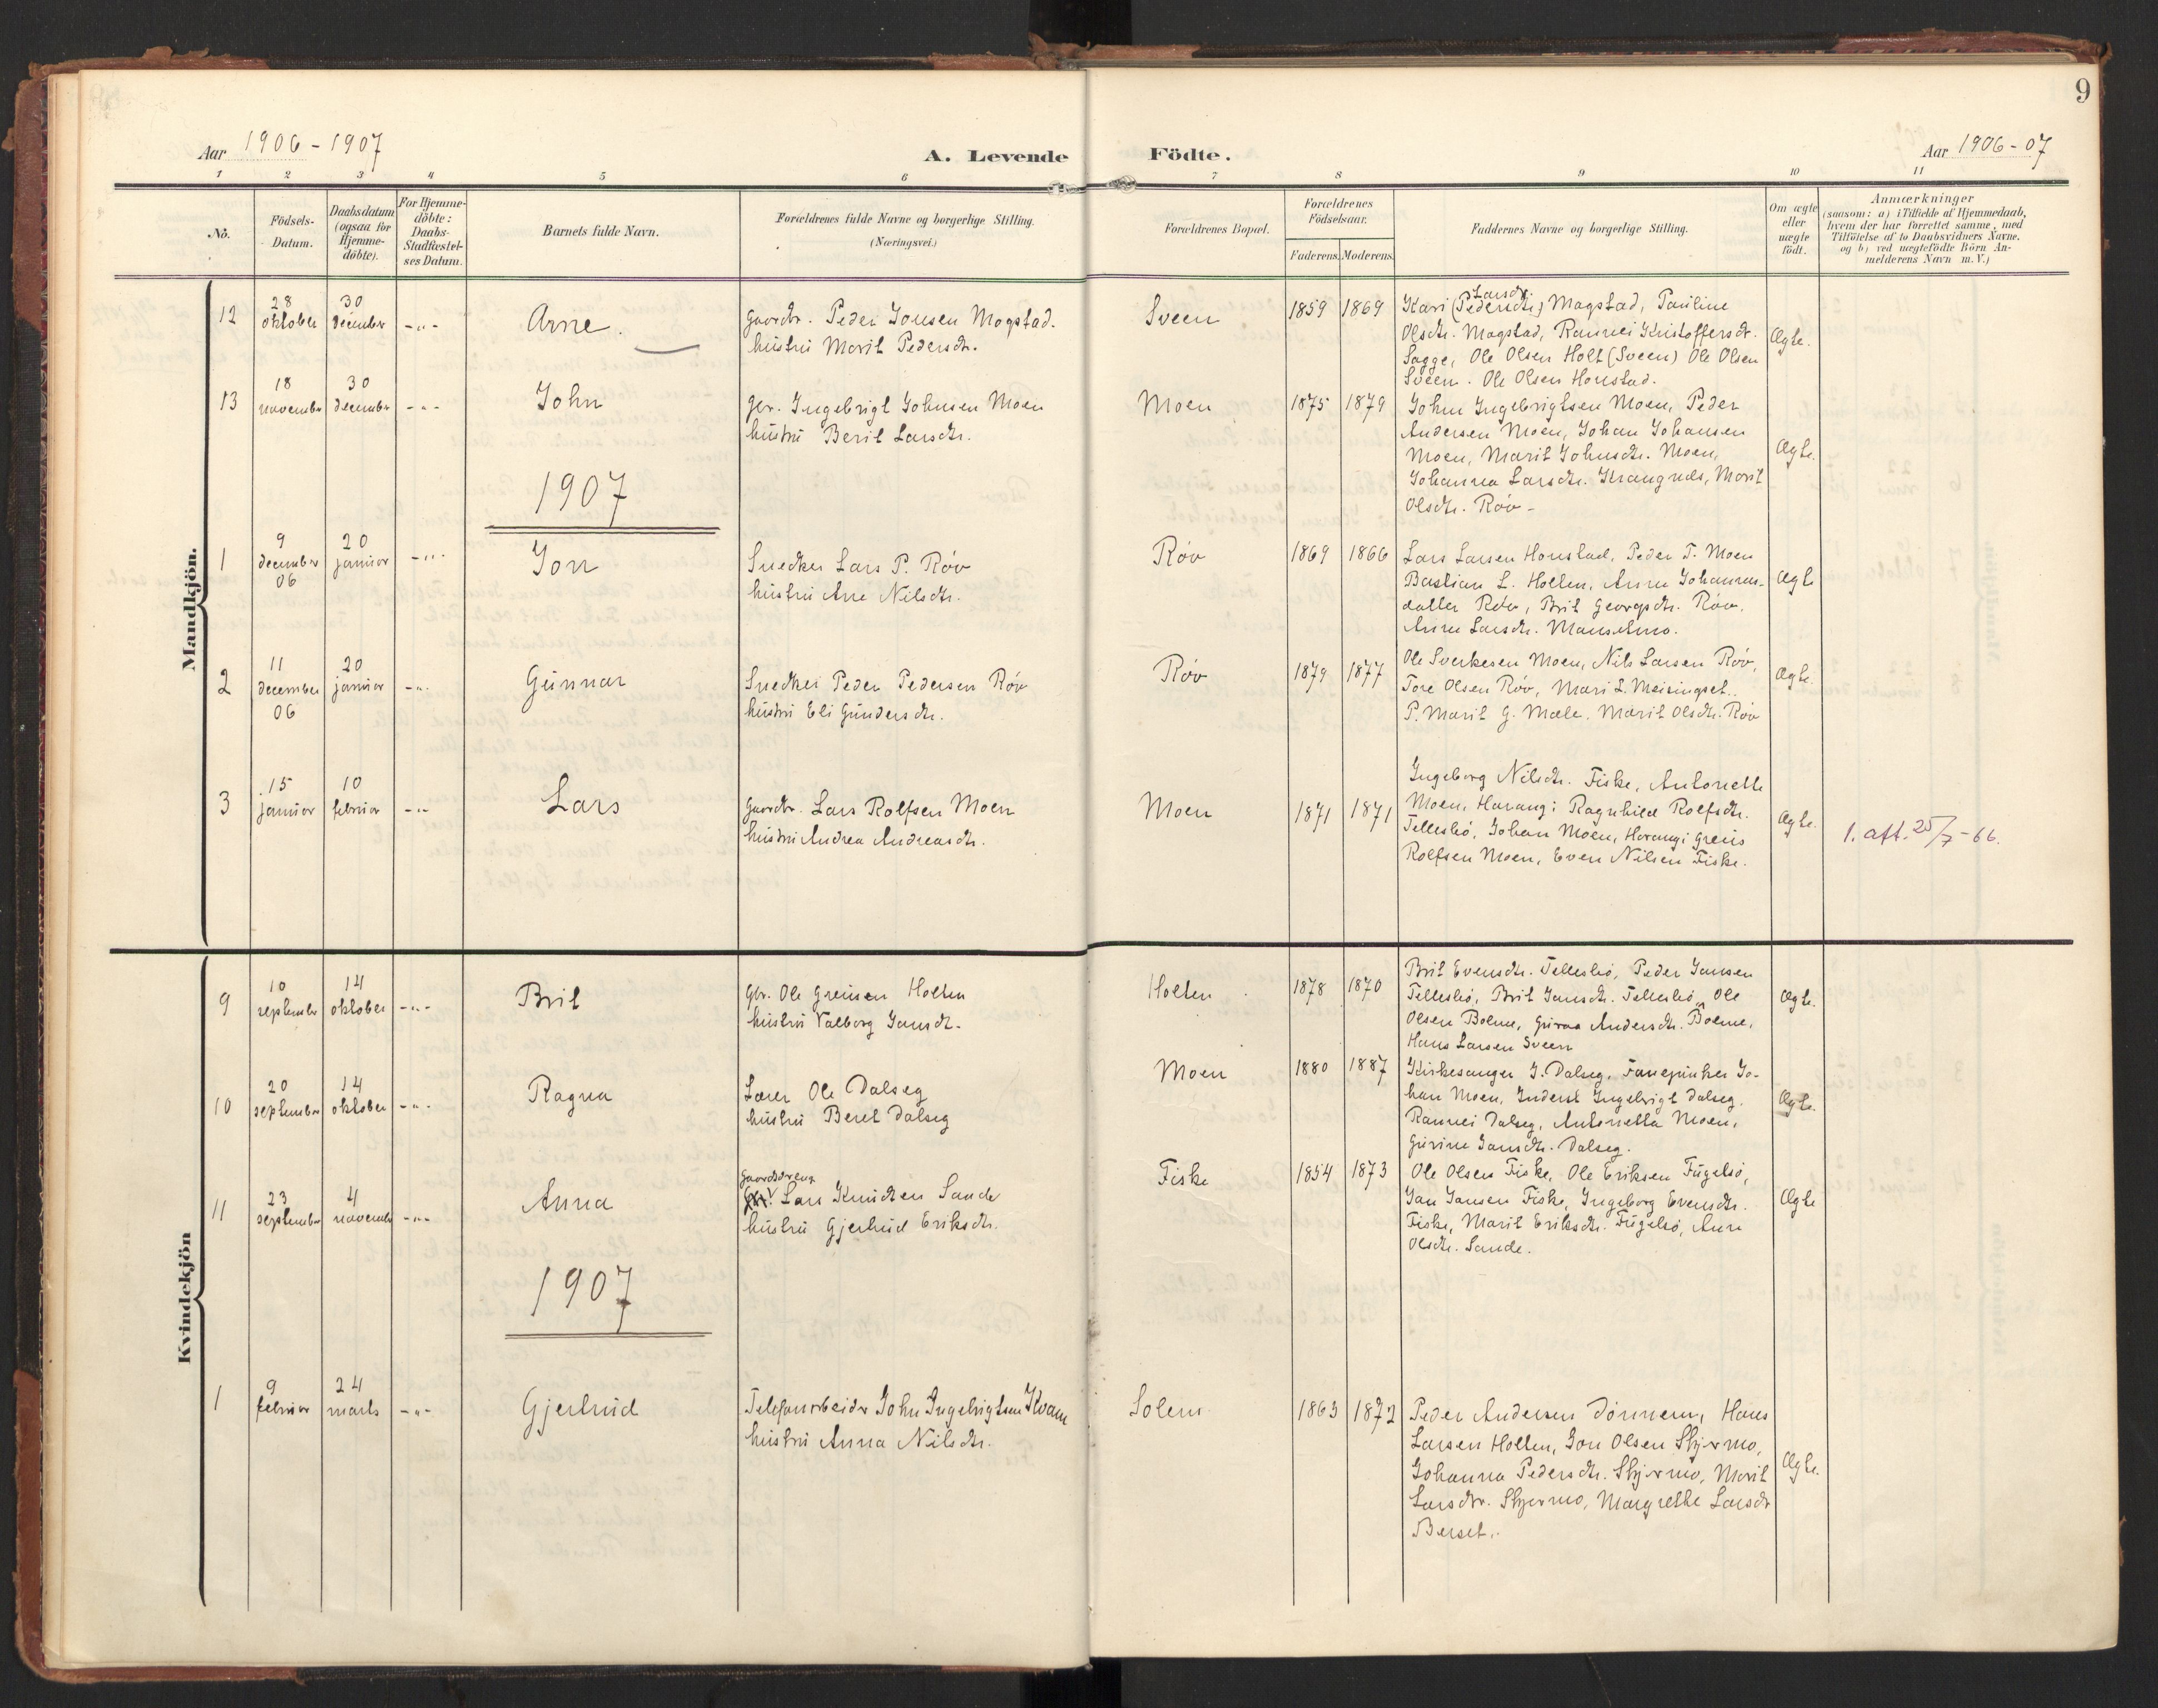 9
Aar 1906-1907
A. Levende Födte.
Aar 1906-07
1 2 3 4 5 6 7 8 9 10 11
No.
Födsels-Datum.
Daabsdatum (ogsaa for Hjemme-döbte).
For Hjemme-döbte: Daabs-Stadfæstel-ses Datum.
Barnets fulde Navn.
Forældrenes fulde Navne og borgerlige Stilling. (Næringsvei.)
Forældrenes Bopæl.
Forældrenes Födselsaar.
Faderens. Moderens.
Faddernes Navne og borgerlige Stilling.
Om ægte eller uægte födt.
Anmærkninger
(saasom: a) i Tilfælde af Hjemmedaab,
hvem der har forrettet samme, med
Tilföielse af to Daabsvidners Navne.
og b) ved uægtefödte Börn An-
melderens Navn m. V.)
Mandkjön.
12 28 oktober 30 december -„- Arne.
Gaardbr. Peder Jonsen Mogstad.
hustru Marit Pedersdtr.
Sveen 1859 1869
Larsdtr.
Kari (Pedersdtr) Magstad, Pauline
Olsdtr. Magstad, Rannei Kristoffersdtr.
Sagge, Ole Olsen Holt (Sveen) Ole Olsen
Sveen. Ole Olsen Honstad.
Ægte.
13 18 november 30 december -„- John
Gbr. Ingebrigt Johnsen Moen
hustru Berit Larsdtr.
Moen 1875 1879
John Ingebrigtsen Moen, Peder
Andersen Moen, Johan Johansen
Moen, Marit Johnsdtr. Moen,
Johanna Larsdtr. Krangnes, Marit
Olsdtr. Røv-
Ægte.
1907
1 9 december 06 20 januar -„- Jon
Snedker Lars P. Røv
hustru Ane Nilsdtr.
Røv 1869 1866
Lars Larsen Honstad, Peder T. Moen
Bastian L. Holten, Anne Johannes-
datter Røv, Brit Georgsdtr. Røv.
Anne Larsdtr.
Ægte
2 11 december 06 20 januar -„- Gunnar
Snedker Peder Pedersen Røv
hustru Eli Gundersdtr.
Røv 1879 1877
Ole Sverkesen Moen, Nils Larsen Røv,
Tore Olsen Røv, Mari L. Meisingset.
P. Marit G. Mæle. Marit Olsdtr. Røv
Ægte.
3 15 januar 10 februar -„- Lars
Gaardbr. Lars Rolfsen Moen
hustru Andrea Andreasdtr.
Moen 1871 1871
Ingeborg Nilsdtr. Fiske, Antonette
Moen, Harang; Ragnhild Rolfsdtr.
Tellesbø, Johan Moen, Harang; Greius
Rolfsen Moen, Even Nilsen Fiske.
Ægte.
1. att. 25/7-66.
Kvindekjön
9 10 september 14 oktober -„- Brit
Gbr. Ole Greiusen Holten
hustru Valborg Jansdtr.
Holten 1878 1870
Brit Evensdtr. Tellesbø, Peder Jansen
Tellesbø, Brit Jansdtr. Tellesbø, Ole
Olsen Bolme, Guroa Andersdtr. Bolme,
Hans Larsen Sveen
Ægte.
10 20 september 14 oktober -„- Ragna
Lærer Ole Dalseg
hustru Beret Dalseg
Moen 1880 1887
Kirkesanger J. Dalseg, Fanejunker Jo-
han Moen, Inderst Ingebrigt Dalseg.
Rannei Dalseg, Antonetta Moen,
Gurine Jansdtr. Dalseg.
Ægte.
11 23 september 4 november -„- Anna
gaardsdreng
Lars Knudsen Sande
hustru Gjertrud Eriksdtr.
Fiske 1854 1873
Ole Olsen Fiske, Ole Eriksen Fugelsø,
Jan Jansen Fiske, Ingeborg Evensdtr.
Fiske, Marit Eriksdtr. Fugelsø, Ane
Olsdtr. Sande.
Ægte
1907
1 9 februar 24 marts -„- Gjertrud
Telefonarbeider John Ingebrigtsen Kvam
hustru Anna Nilsdtr.
Solem 1863 1872
Peder Andersen Dønnem, Hans
Larsen Holten, Jon Olsen Skjermo,
Johanna Pedersdtr. Skjermo, Marit
Larsdtr. Skjermo, Margrethe Larsdtr
Berset.
Ægte.